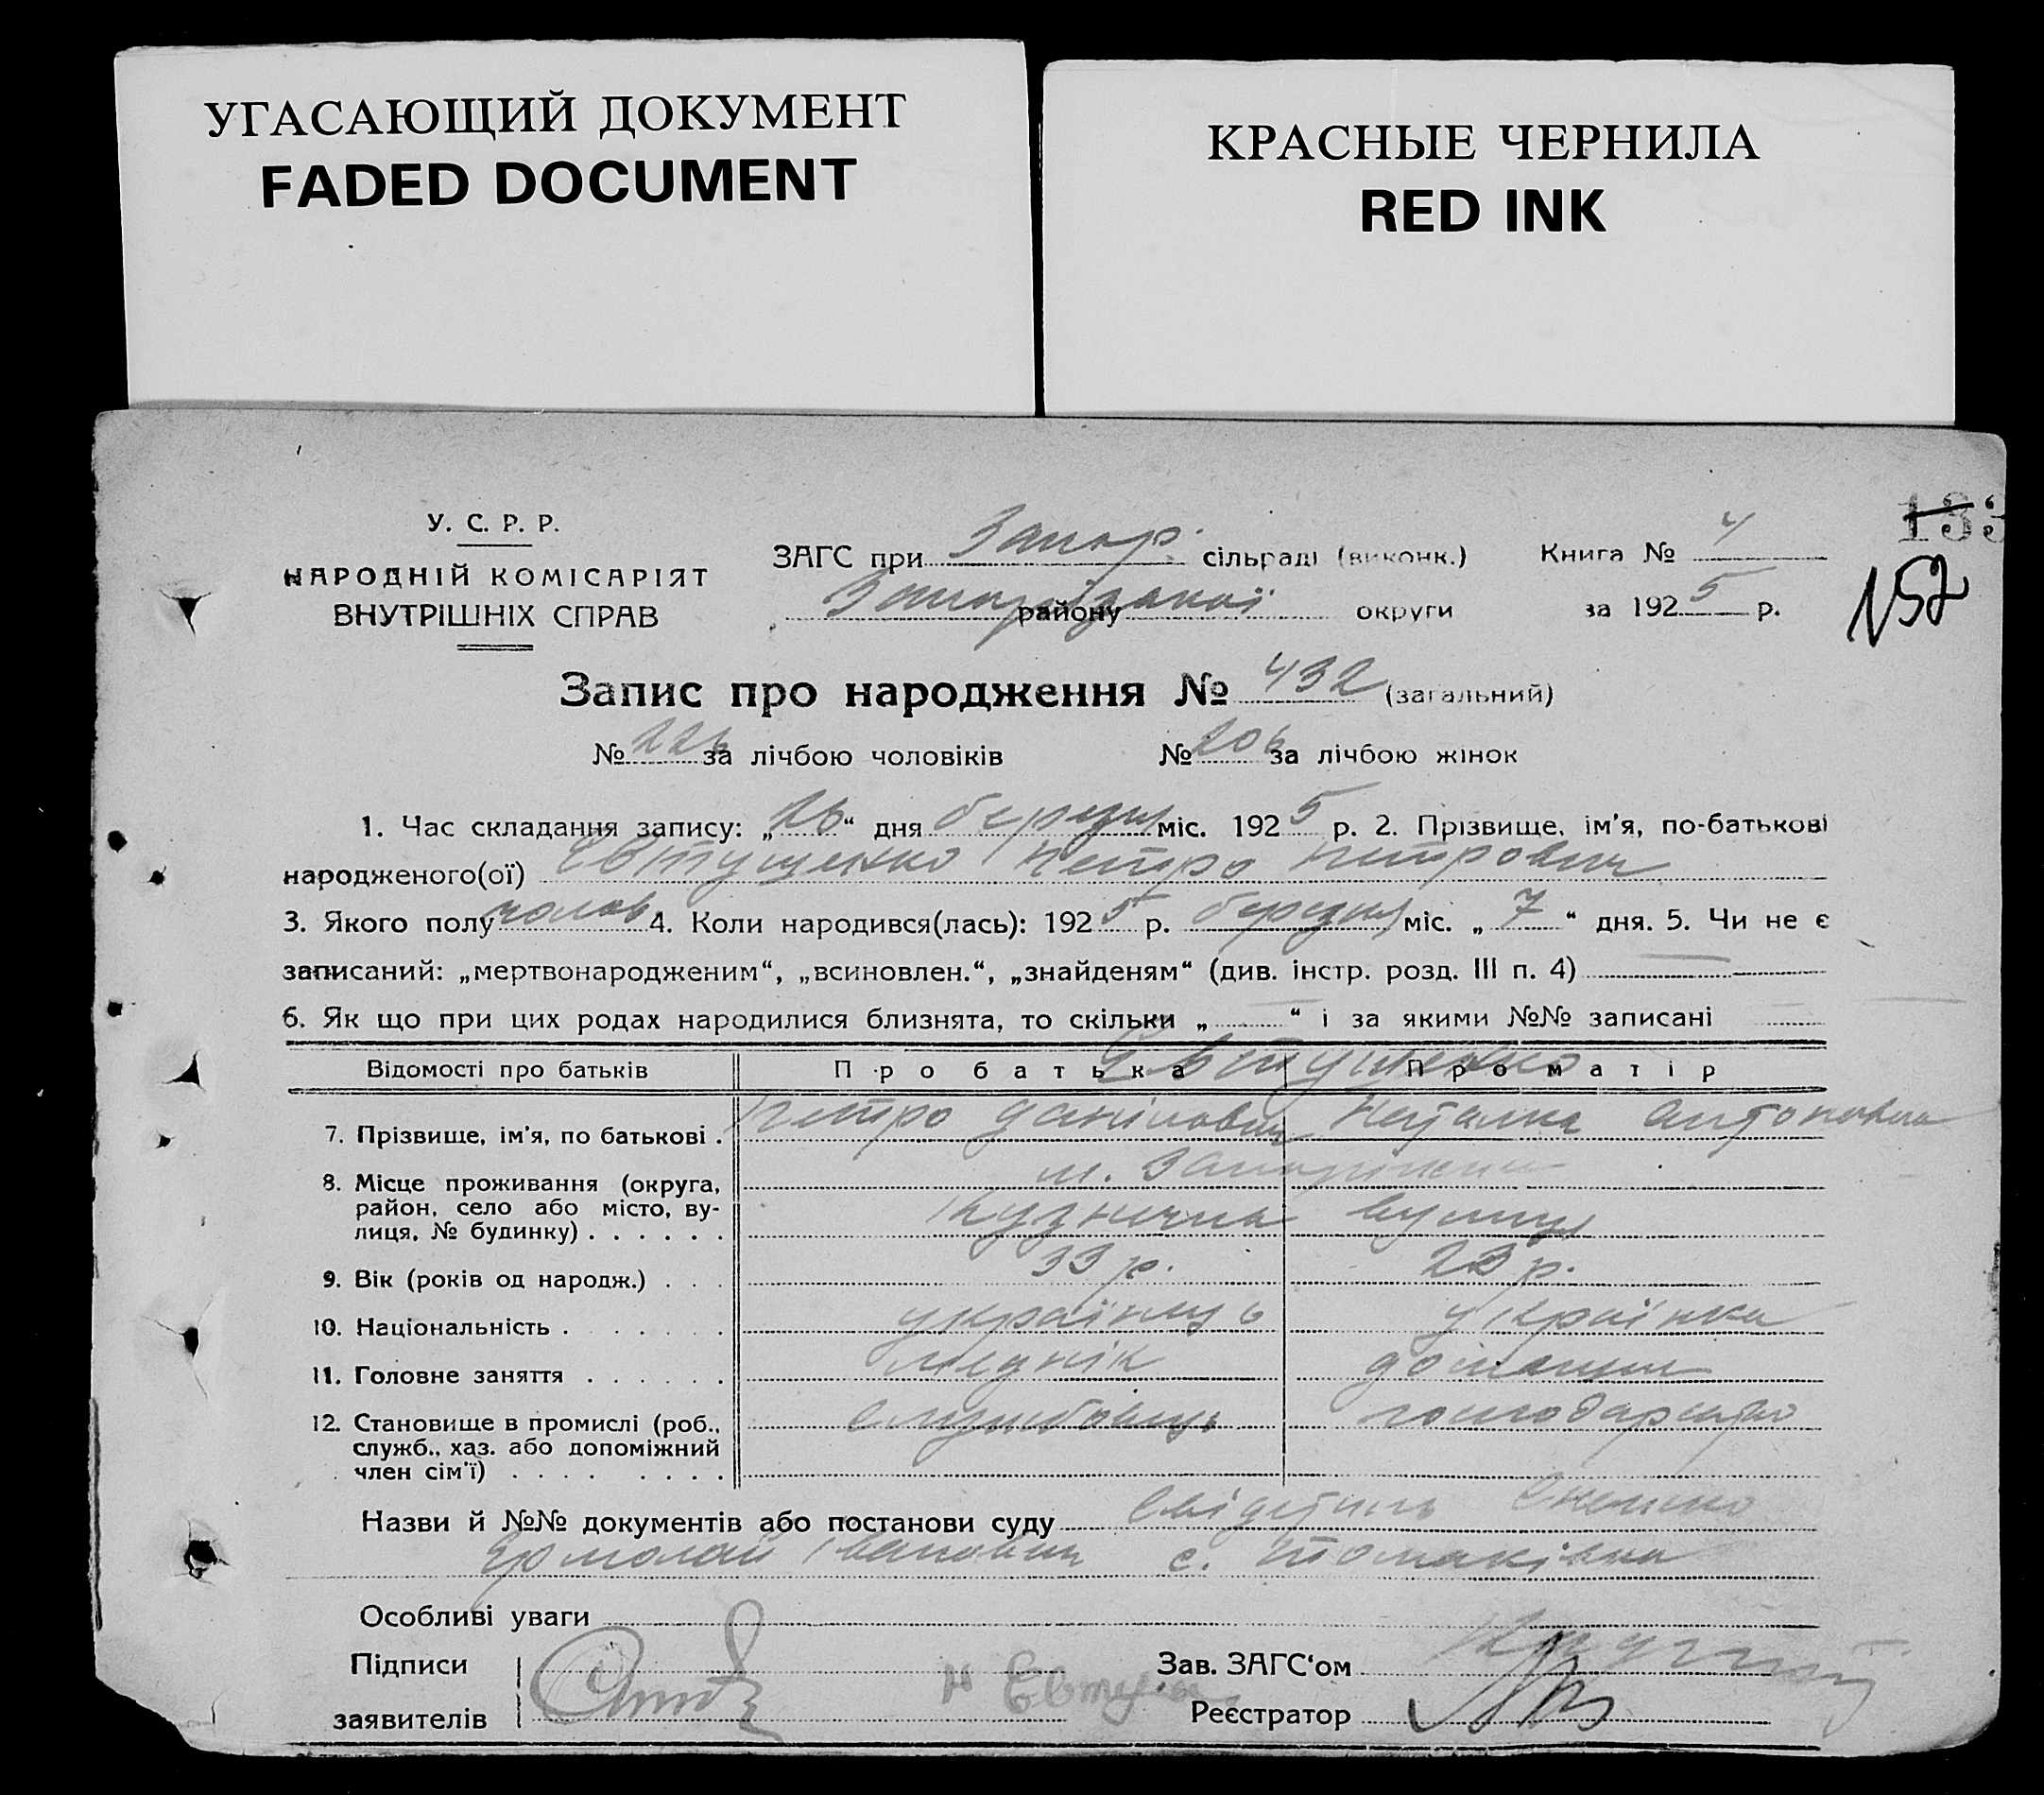 УГАСАЮЩИЙ ДОКУМЕНТ
FADED DOCUMENT
КРАСНЫЕ ЧЕРНИЛА
RED INK
133
152
У. С. Р. Р.
НАРОДНІЙ КОМІСАРІЯТ
ВНУТРІШНІХ СПРАВ
ЗАГС при Запор. сільраді (виконк.) Книга № 4
Запорізької району округи за 1925 р.
Запис про народження № 432 (загальний)
№ 226 за лічбою чоловіків № 206 за лічбою жінок
1. Час складання запису: „26“ дня березня міс. 1925 р. 2. Прізвище, ім’я, по-батькові
народженого(ої) Євтушенко Петро Петрович
3. Якого полу чолов 4. Коли народився(лась): 1925 р. березня міс. „7“ дня. 5. Чи не є
записаний: „мертвонародженим“, „всиновлен.“, „знайденям“ (див. інстр. розд. III п. 4)
6. Як що при цих родах народилися близнята, то скільки „ “ і за якими №№ записані
Євтушенко
Відомості про батьків Про батька Про матір
7. Прізвище, ім’я, по батькові . Петро Данілович Наталка Антоновна
8. Місце проживання (округа, м. Запоріжжя
район, село або місто, ву- Кузнична вулиця
лиця, № будинку) . . . . . .
9. Вік (років од народж.) . . . 33 р. 23 р.
10. Національність . . . . . . українець українка
11. Головне заняття . . . . . . меднік домашнє
12. Становище в промислі (роб., службовець господарство
служб., хаз. або допоміжний
член сім’ї) . . . . . . . .
Назви й №№ документів або постанови суду Свідетель
Ермолай Іванович с. Томаківка
Особливі уваги
Підписи Зав. ЗАГС‘ом
заявителів Н Евтуш Реєстратор